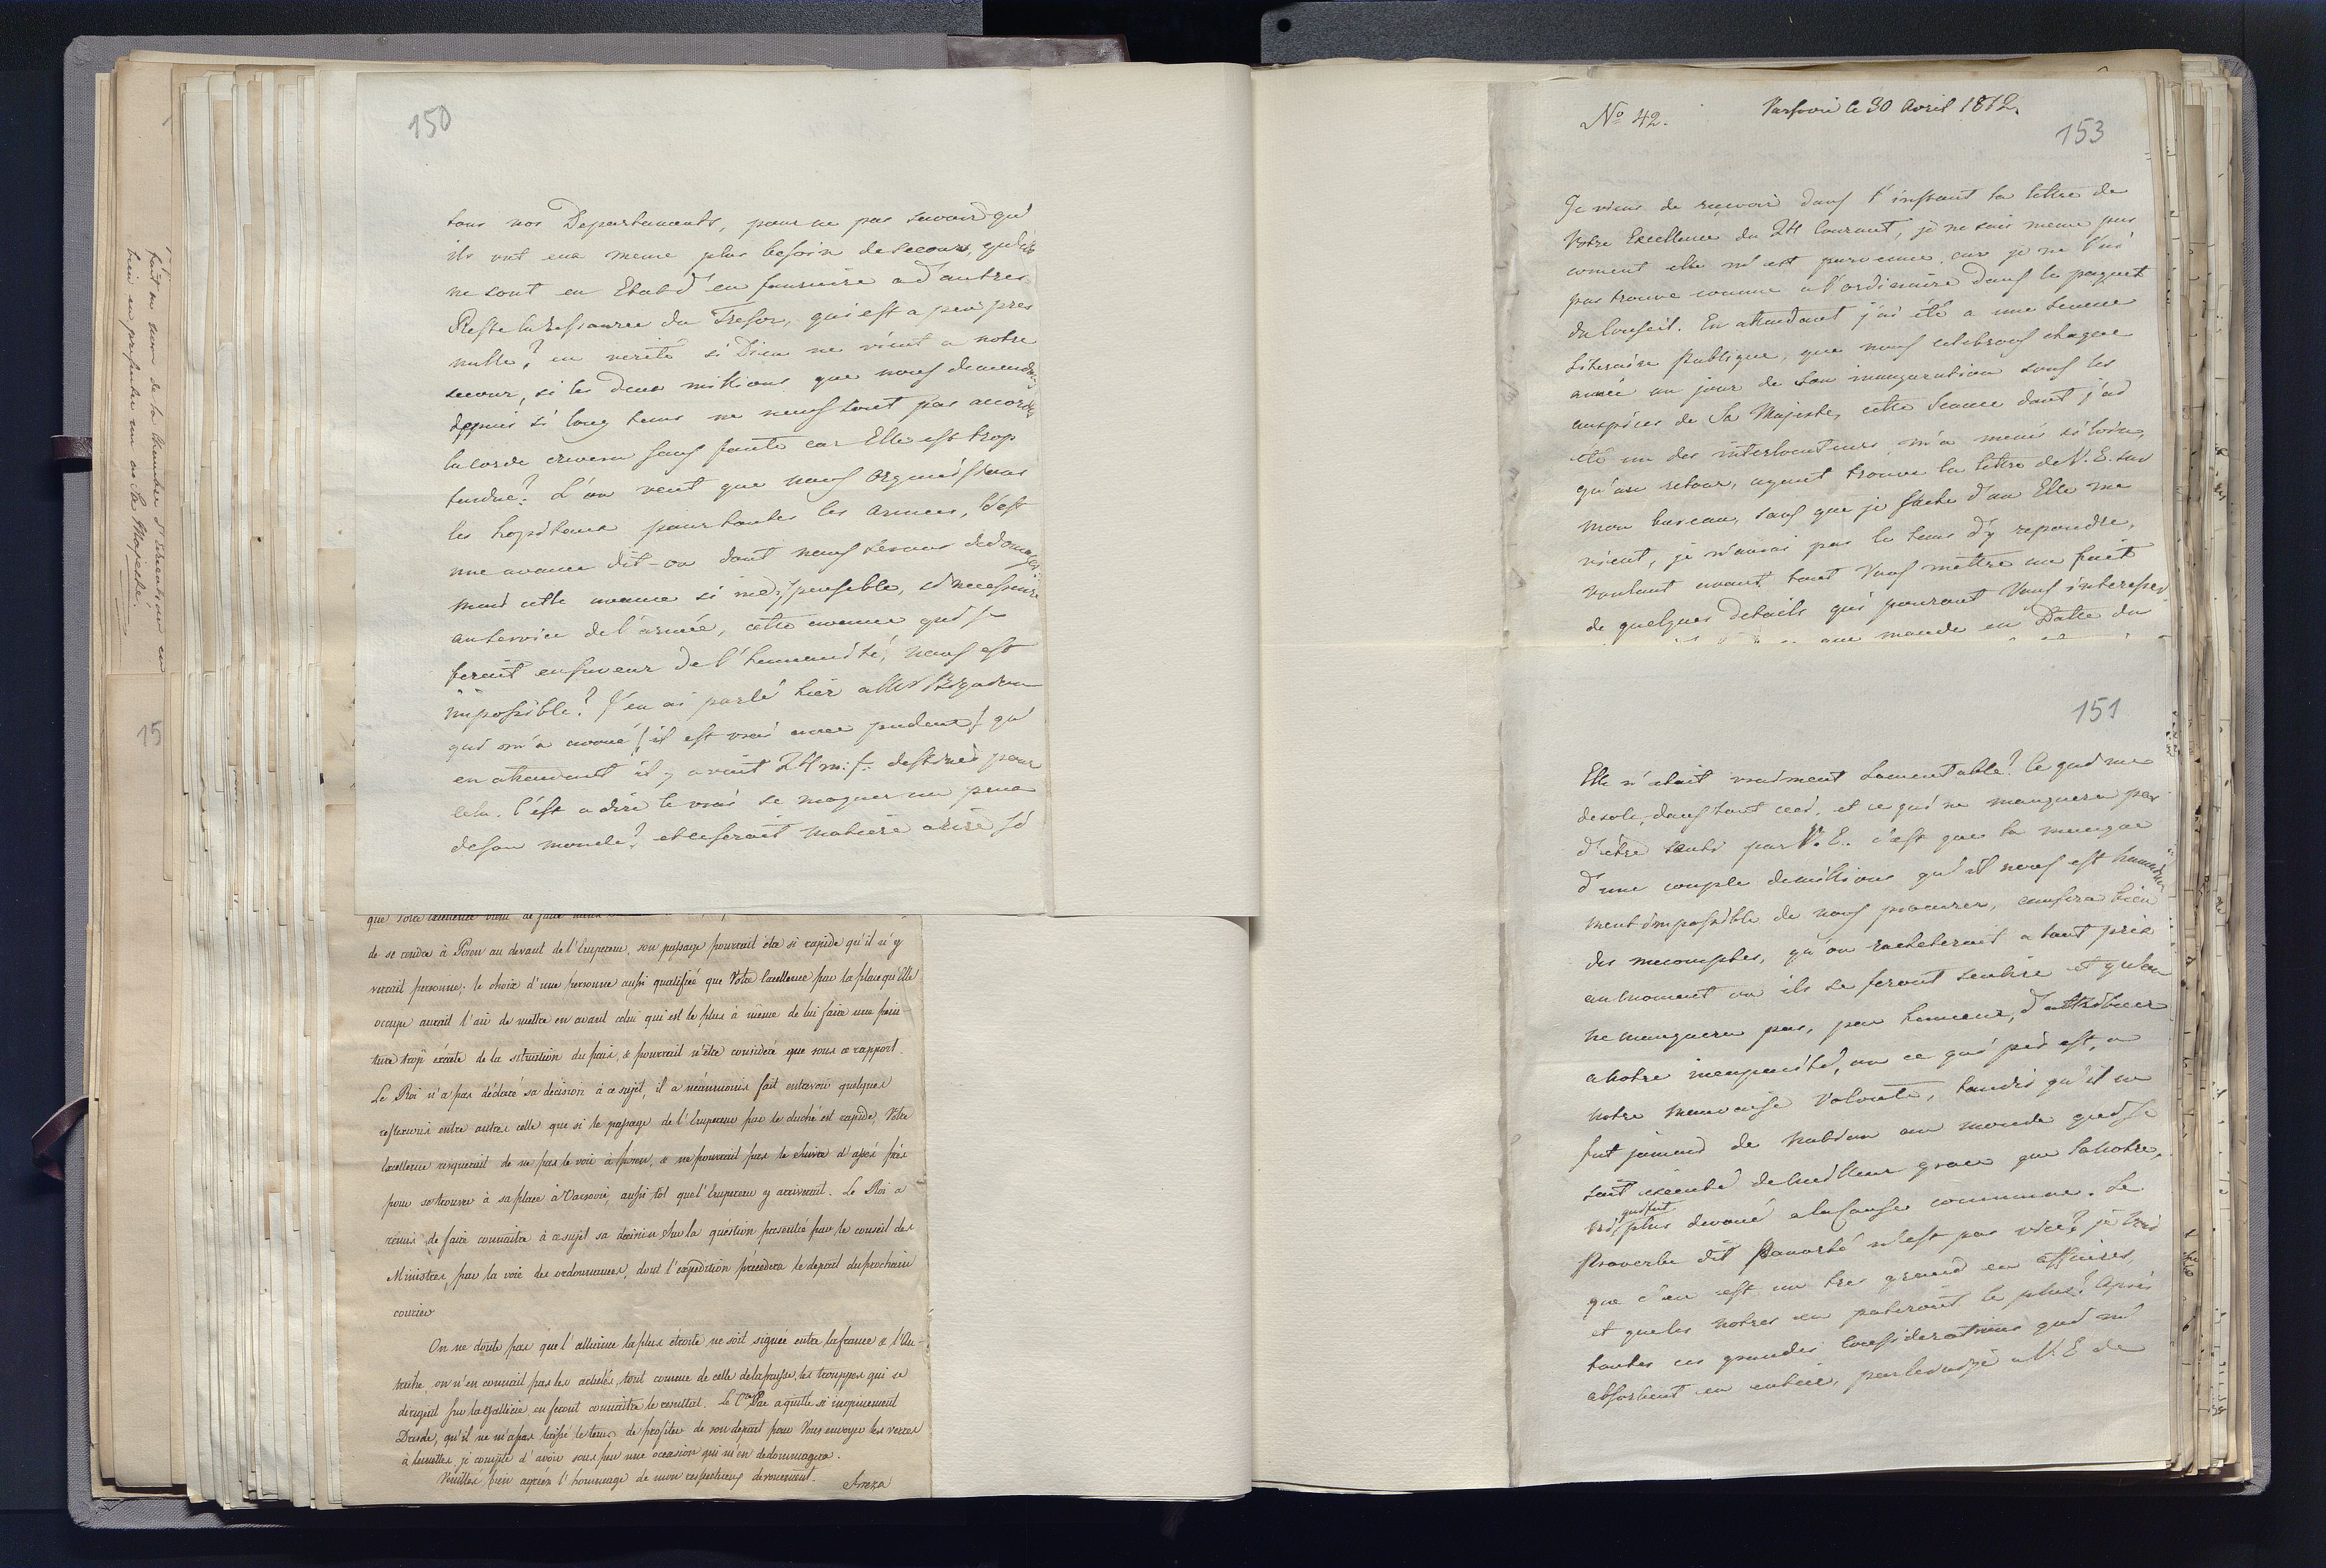 150
tous nos Departements, pour ne pas savoir qu'
ils ont eux meme plus besoin de secours, qu'ils
ne sont en Etat d'en fournire a d'autres.
Reste la ressource du Tresor, qui est a peu pres
nulle? en verité si Dieu ne vient a notre
secour, si les deux millions que nous demandons
depuis si long tems ne nous sont pas accordés
la corde crevera sans faute car Elle est trop
tendue? L'on veut que nous organisions
les hopitaux pour toutes les armees, c'est
une avance dit-on dont nous serons dedomagés
mais cette avance si indispensable, si necessaire
au service de l'armée, cette avance qui se
ferait en faveur de l'humanité, nous est
impossible? J'en ai parlé hier a Mr Bignon
qui m'a avoué (il est vrai avec pudeur) qu'
en attendant il y avait 24 m: f: destinés pour
cela. C'est a dire le vrai se moquer un peu
de son monde? et ce serait matiere a rire si
que Votre Excellence vient de faire
de se rendre à Posen au devant de l'Empereur, son passage pourrait être si rapide qu'il n'y
verrait personne; le choix d'une personne aussi qualifiée que Votre Excellence par la place qu'Elle
occupe aurait l'air de mettre en avant celui qui est le plus à même de lui faire une pein-
ture trop exacte de la situation du pais, & pourrait n'être consideré que sous ce rapport.
Le Roi n'a pas déclaré sa decision à ce sujet, il a néanmoins fait entrevoir quelques
reflexions entre autres celle que si le passage de l'Empereur par le duché est rapide, Votre
Excellence risquerait de ne pas le voir à Posen, & ne pourrait pas le suivre d'assés près
pour se trouver à sa place à Varsovie, aussi tot que l'Empereur y arriverait. Le Roi a
remis de faire connaitre à ce sujet sa decision sur la question presentée par le conseil des
Ministres, par la voie des ordonnances, dont l'expedition précedera le depart du prochain
courier
On ne doute pas que l'alliance la plus étroite ne soit signée entre la france & l'Au-
triche, on n'en connait pas les articles, tout comme de celle de la prusse, les trouppes qui se
dirigent sur la Gallicie en feront connaitre le resultat. Le Cte Pac a quitté si inopinement
Dresde, qu'il ne m'a pas laissé le tems de profiter de son depart pour Vous envoyer les verres
à lunettes, je compte d'avoir sous peu une occasion qui m'en dedommagera.
Veuillés bien agréer l'hommage de mon respectueux devouement.
Breza
15
No 42.
Varsovie le 30 Avril 1812.
153
Je viens de recevoir dans l'instant la lettre de
Votre Excellence du 24 Courant, je ne sais meme pas
coment elle m'est parvenue, car je ne l'ai
pas trouvé comme a l'ordinaire dans le paquet
du Conseil. En attendant j'ai été a une seance
Literaire Publique, que nous celebrons chaque
année au jour de son inauguration sous les
auspices de Sa Majesté, cette Seance dont j'ai
été un des interlocuteurs m'a mené si loin,
qu'au retour, ayant trouvé la lettre de V. E. sur
mon bureau, sans que je sache d'ou Elle me
vient, je n'aurai pas le tems d'y repondre,
voulant avant tout Vous mettre au fait
de quelques details qui pouront Vous interesser
me mande en Datte du
151
Elle n'était vraiment lamentable? Ce qui me
desole, dans tout ceci, et ce qui ne manquera pas
d'être senti par V. E. c'est que le manque
d'une couple de millions qu'il nous est humaine-
ment impossible de nous procurer, causera bien
des mecomptes, qu'on racheterait a tout prix
au moment ou ils se feront sentire et qu'on
ne manquera pas, par humeur, d'attribuer
a notre incapacité, ou ce qui pis est, a
notre mauvaise Volonté, tandis qu'il ne
fut jamais de nation au monde qui se
soit executé de meilleur grace que la notre,
ni qui fut plus devoué a la Cause commune. Le
Proverbe dit Pauvreté n'est pas vice? je vois
que c'en est un tres grand en affaires,
et que les notres en patiront le plus? Après
toutes ces grandes considerations qui m'
absorbent en entier, parlerai-je a V. E de